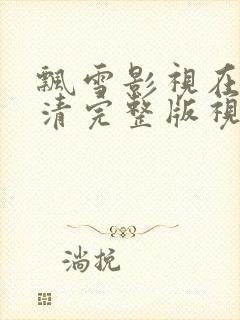 飄雪影視在
清完整版視
淌挩